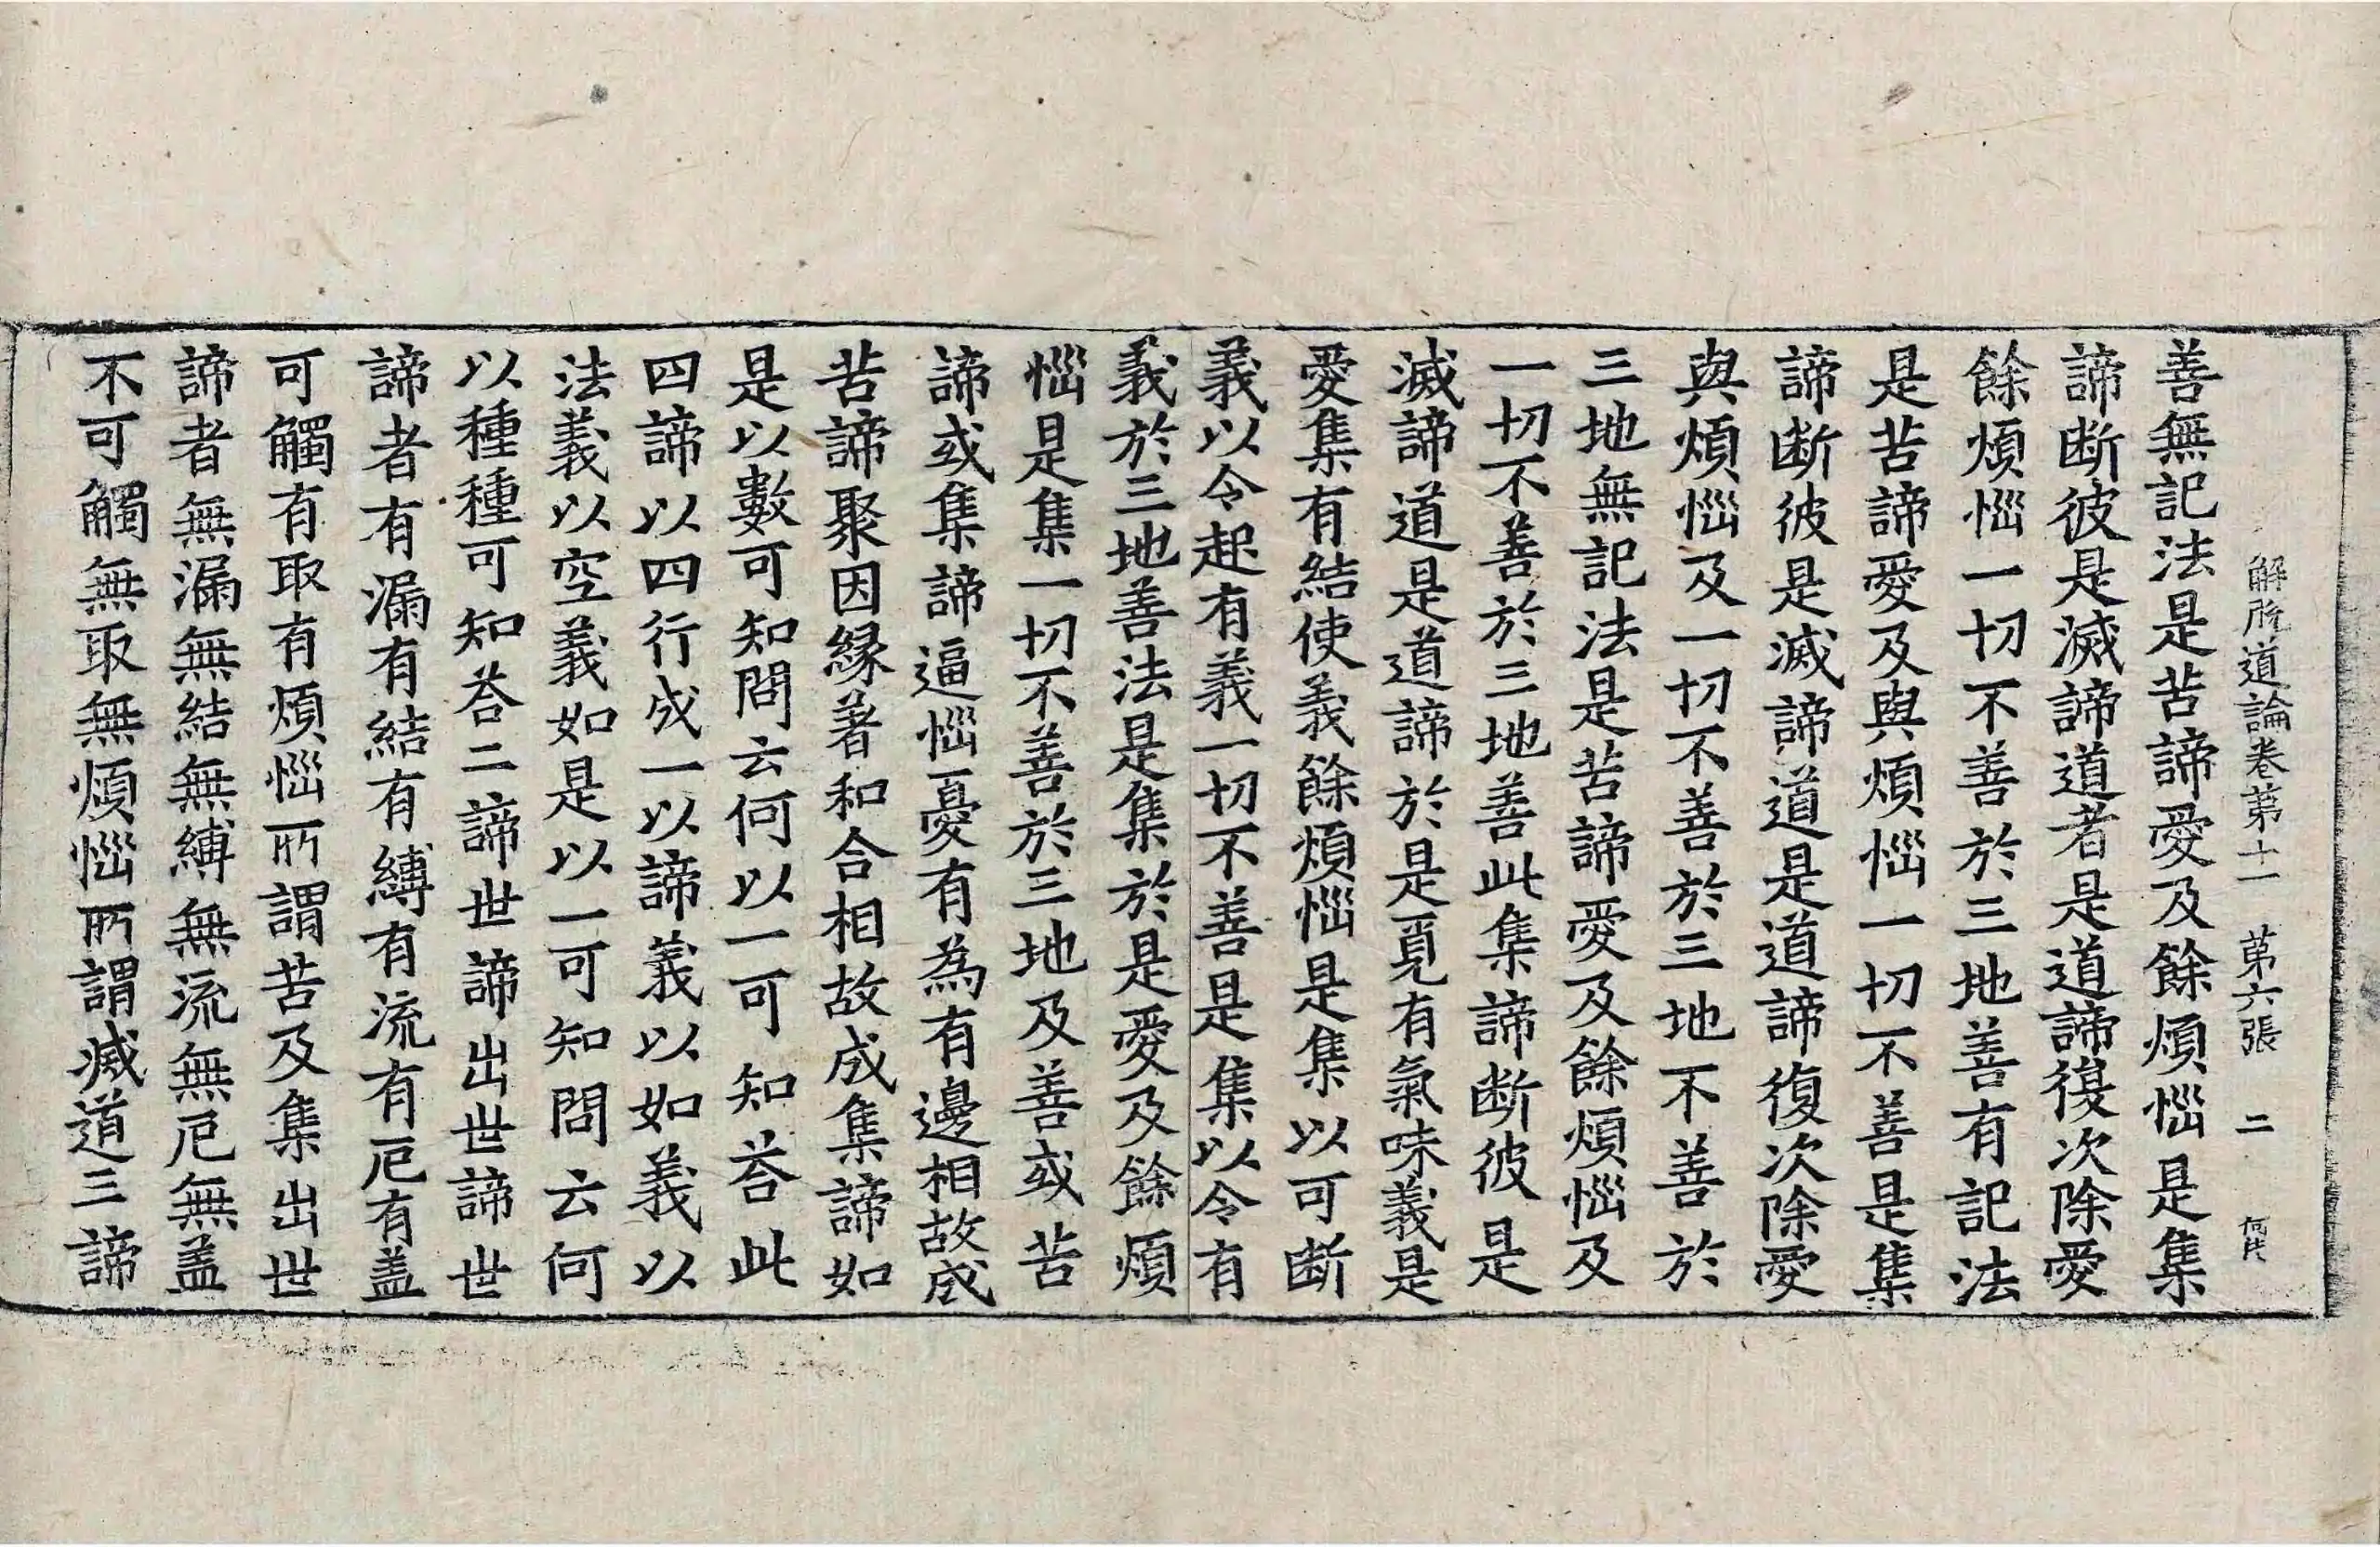 解脫道論卷第十一　第六張　二
善無記法是苦諦愛及餘煩惱是集
諦断彼是滅諦道者是道諦復次除愛
餘煩惱一切不善於三地善有記法
是苦諦愛及與煩惱一切不善是集
諦断彼是滅諦道是道諦復次除愛
與煩惱及一切不善於三地不善於
三地無記法是苦諦愛及餘煩惱及
一切不善於三地善此集諦断彼是
滅諦道是道諦於是覓有氣味義是
愛集有結使義餘煩惱是集以可断
義以令起有義一切不善是集以令有
義於三地善法是集於是愛及餘煩
惱是集一切不善於三地及善或苦
諦或集諦逼惱憂有為有邊相故成
苦諦聚因縁著和合相故成集諦如
是以數可知問云何以一可知荅此
四諦以四行成一以諦義以如義以
法義以空義如是以一可知問云何
以種種可知荅二諦世諦出世諦世
諦者有漏有結有縛有流有厄有盖
可觸有取有煩惱所謂苦及集出世
諦者無漏無結無縛無流無厄無盖
不可觸無取無煩惱所謂滅道三諦